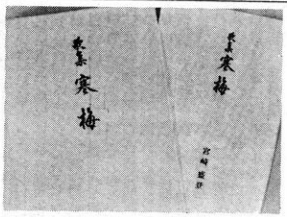 歌集 寒梅
宮崎
歌集 寒梅